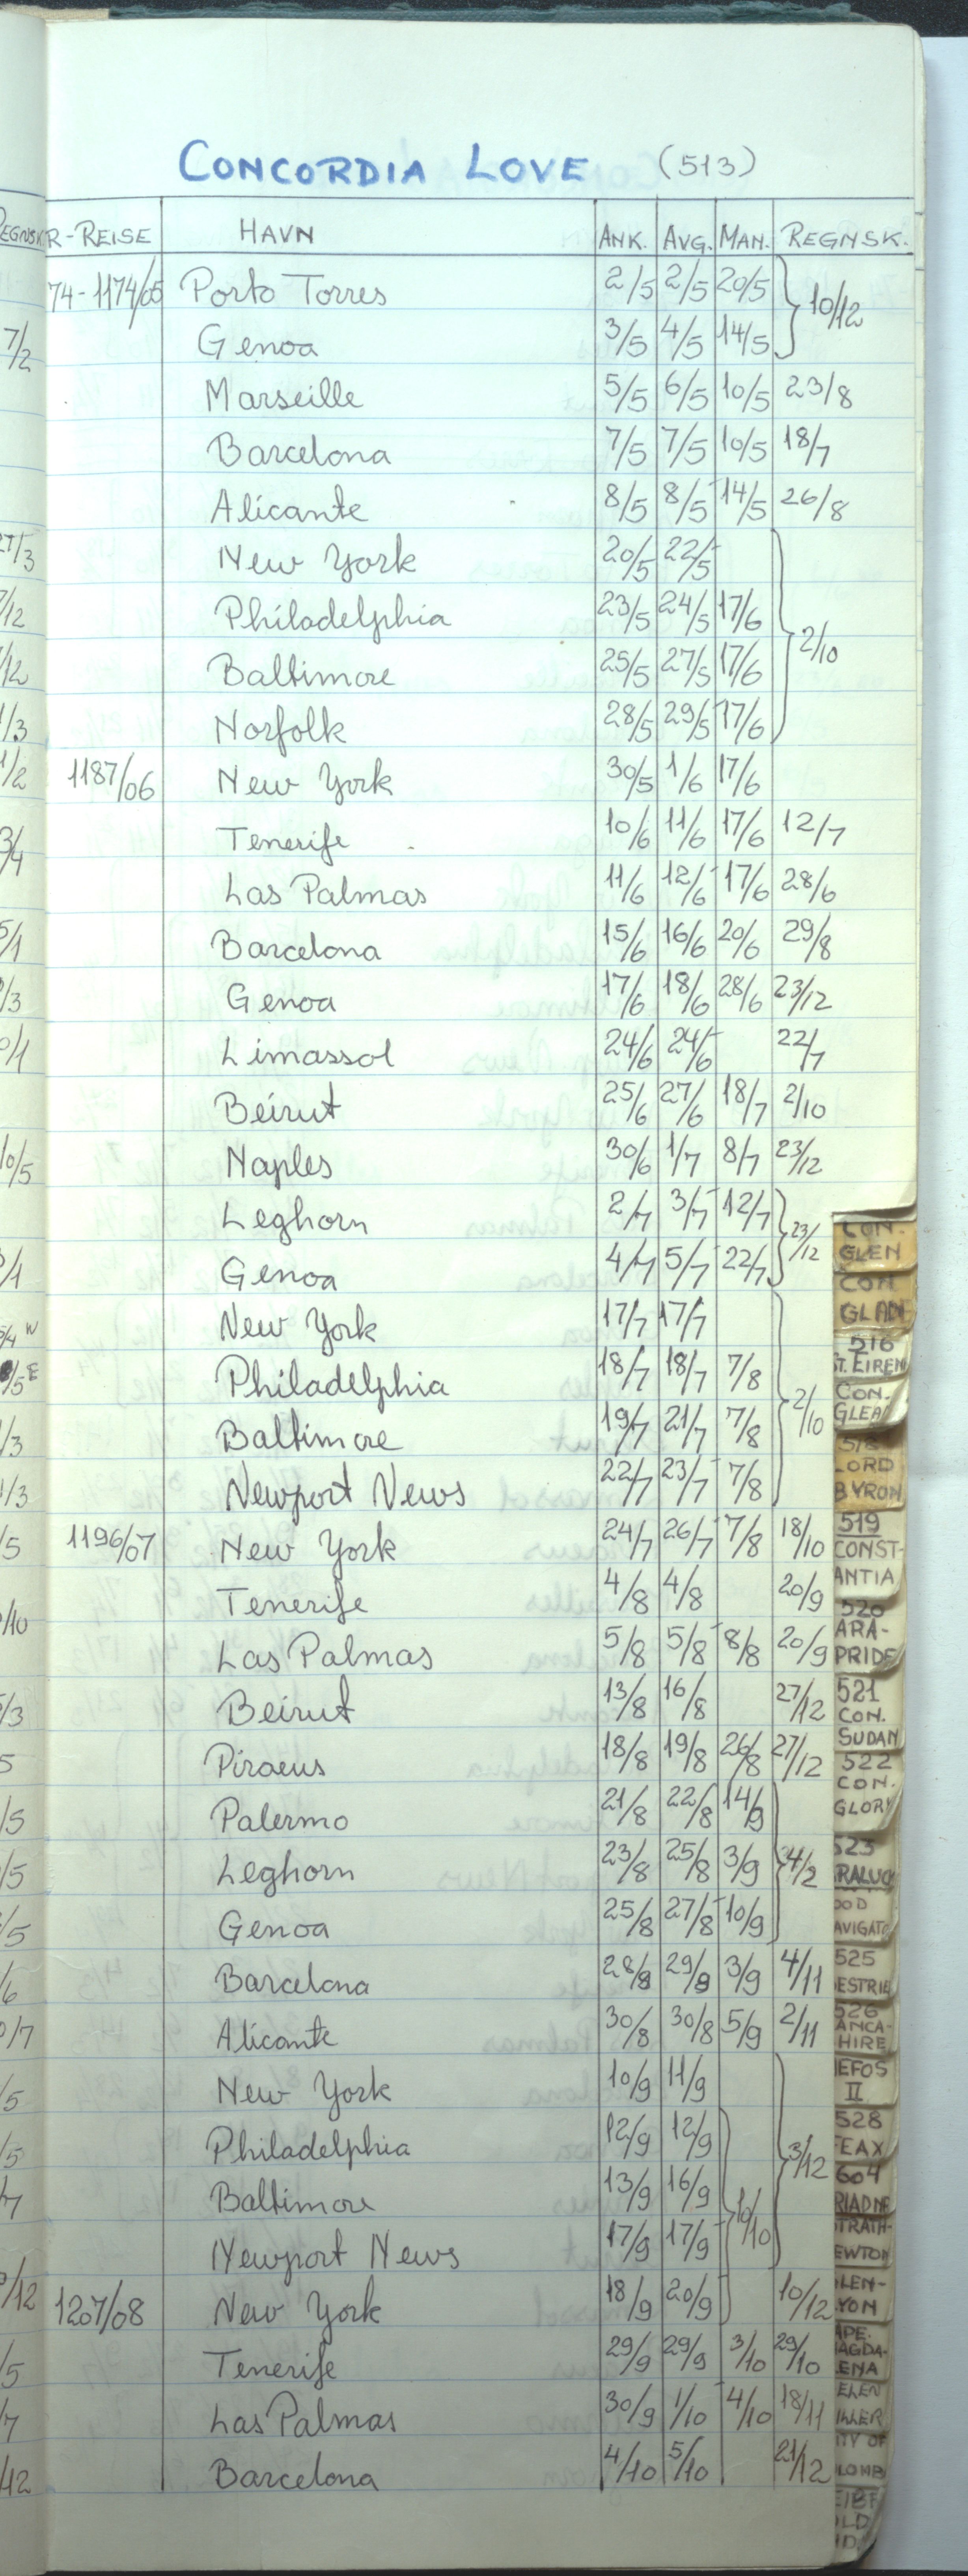 CONCORDIA LOVE (513)
REGNSK R-REISE HAVN ANK. AVG. MAN. REGNSK.
74-1174/05 Porto Torres 2/5 2/5 20/5 10/12
7/2 Genoa 3/5 4/5 14/5
Marseille 5/5 6/5 10/5 23/8
Barcelona 7/5 7/5 10/5 18/7
Alicante 8/5 8/5 14/5 26/8
27/3 New York 20/5 22/5
/12 Philadelphia 23/5 24/5 17/6 2/10
/12 Baltimore 25/5 27/5 17/6
1/3 Norfolk 28/5 29/5 17/6
1/2 1187/06 New York 30/5 1/6 17/6
3/4 Tenerife 10/6 11/6 17/6 12/7
Las Palmas 11/6 12/6 17/6 28/6
5/1 Barcelona 15/6 16/6 20/6 29/8
/3 Genoa 17/6 18/6 28/6 23/12
/1 Limassol 24/6 24/6 22/7
Beirut 25/6 27/6 18/7 2/10
10/5 Naples 30/6 1/7 8/7 23/12
Leghorn 2/7 3/7 12/7 23/12
/1 Genoa 4/7 5/7 22/7
/4 W New York 17/7 17/7
/5 E Philadelphia 18/7 18/7 7/8 2/10
/3 Baltimore 19/7 21/7 7/8
/3 Newport News 22/7 23/7 7/8
/5 1196/07 New York 24/7 26/7 7/8 18/10
Tenerife 4/8 4/8 20/9
/10 Las Palmas 5/8 5/8 8/8 20/9
/3 Beirut 13/8 16/8 27/12
5 Piraeus 18/8 19/8 26/8 27/12
/5 Palermo 21/8 22/8 14/9
/5 Leghorn 23/8 25/8 3/9 4/2
/5 Genoa 25/8 27/8 10/9
/6 Barcelona 28/8 29/8 3/9 4/11
/7 Alicante 30/8 30/8 5/9 2/11
/5 New York 10/9 11/9
/5 Philadelphia 12/9 12/9 3/12
7 Baltimore 13/9 16/9 10/10
Newport News 17/9 17/9
/12 1207/08 New York 18/9 20/9 10/12
/5 Tenerife 29/9 29/9 3/10 29/10
/7 Las Palmas 30/9 1/10 4/10 18/11
/12 Barcelona 4/10 5/10 21/12
CON.
GLEN
CON
GLAN
516
ST. EIREN
CON.
GLEA
518
LORD
BYRON
519
CONST-
ANTIA
520
ARA-
PRIDE
521
CON.
SUDAN
522
CON.
GLORY
523
RALUC
OOD
AVIGATO
525
ESTRIE
526
ANCA-
HIRE
EFOS
II
528
FEAX
604
RIADNE
TRATH-
EWTON
LEN-
YON
APE.
AGDA-
ENA
ELEN
ILLER
ITY OF
LOMB